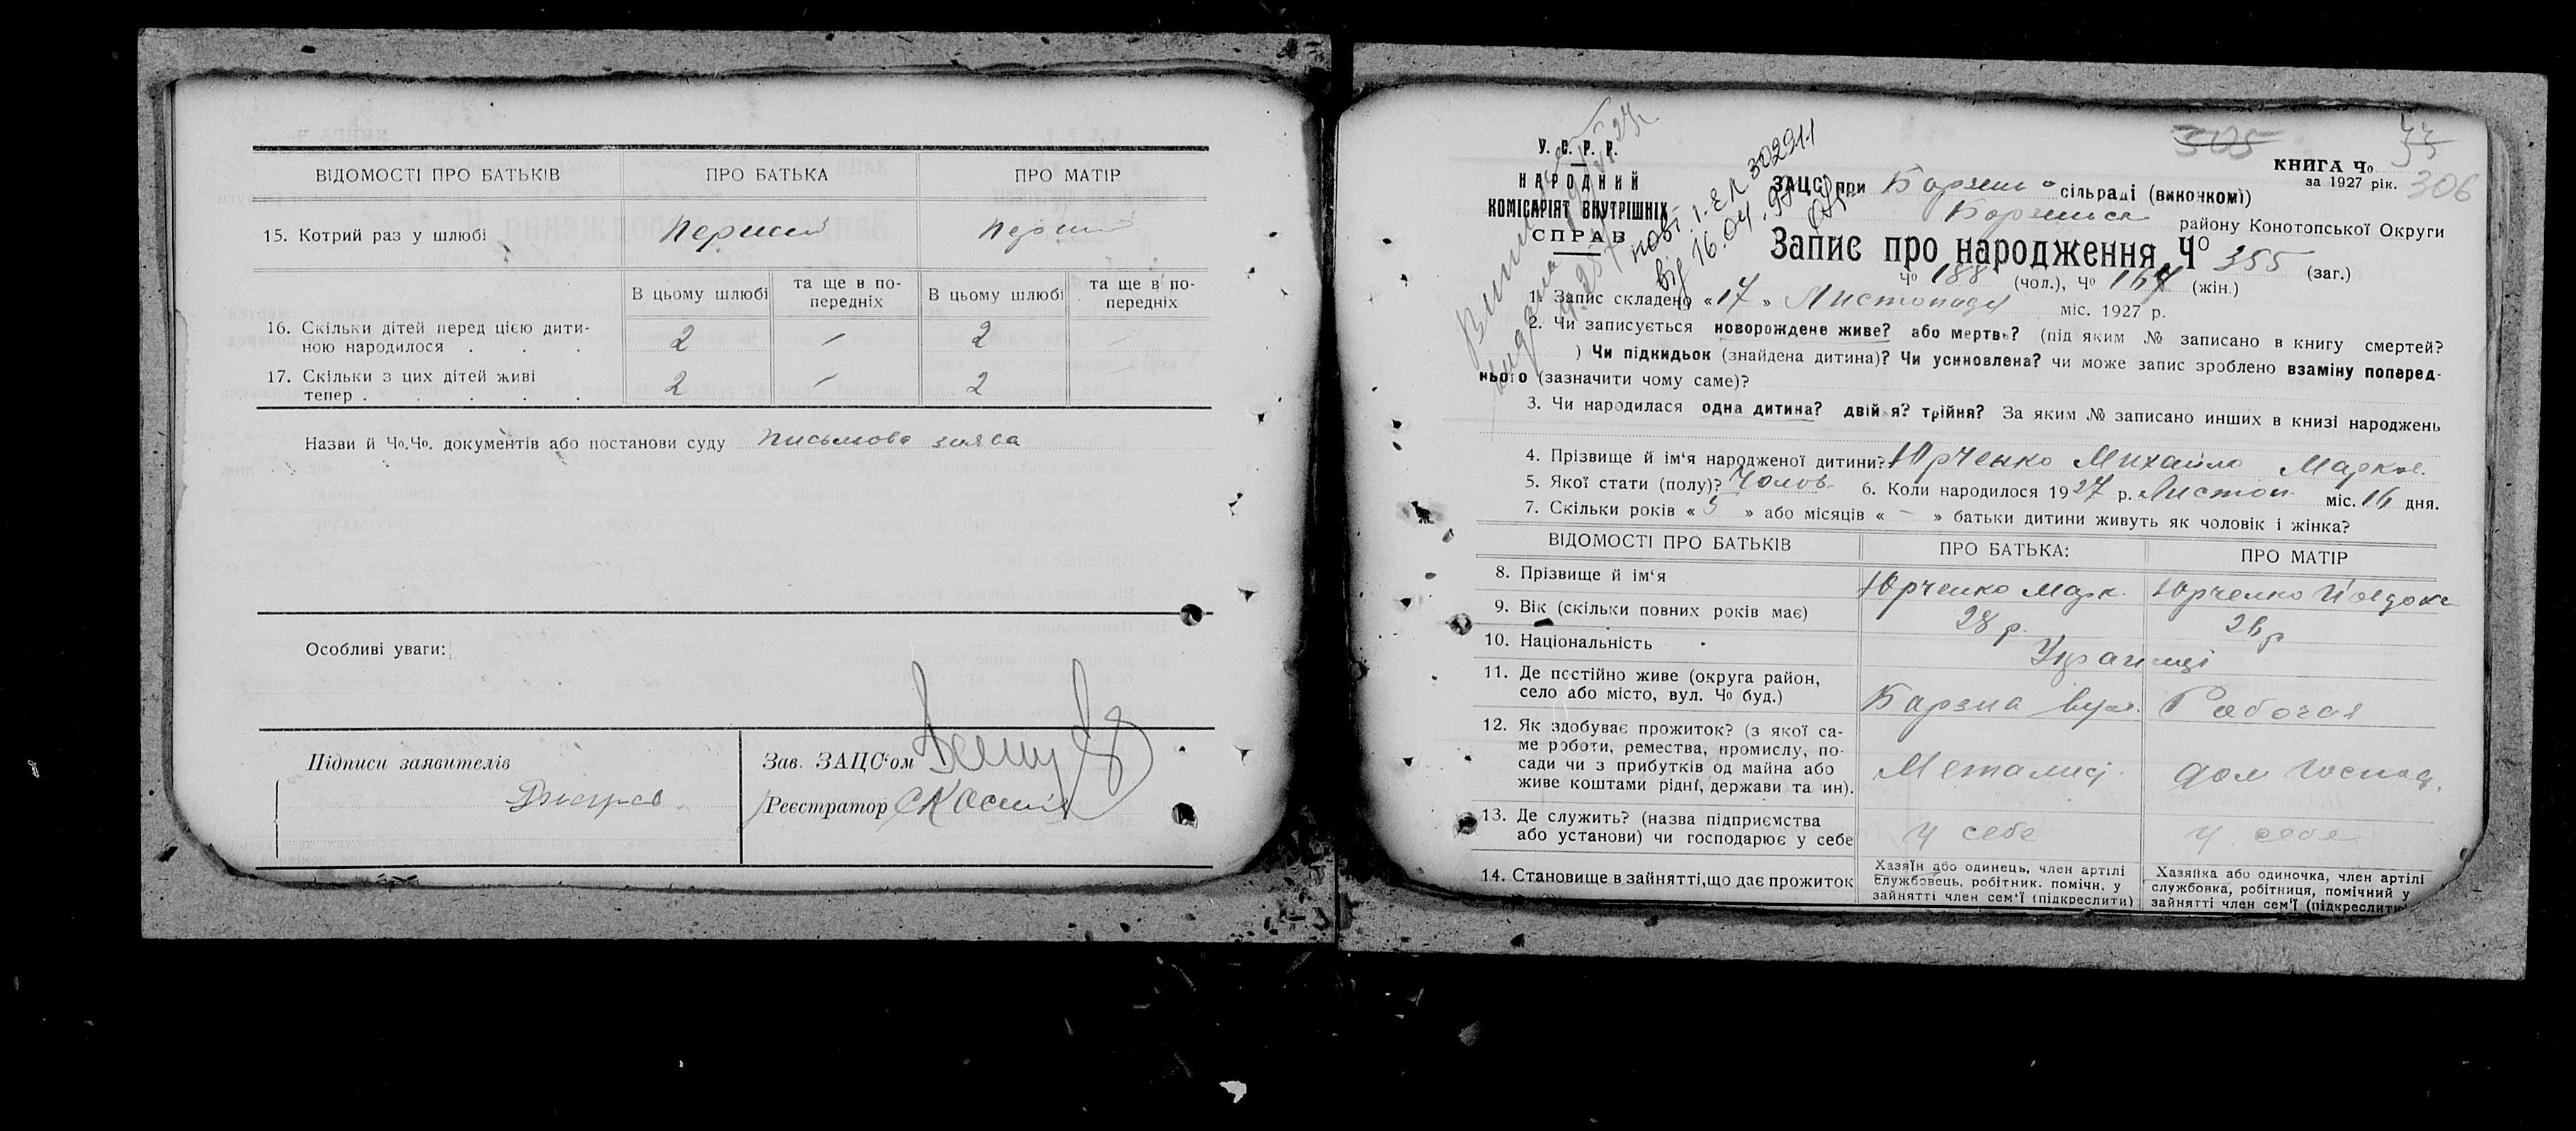 ВІДОМОСТІ ПРО БАТЬКІВ ПРО БАТЬКА ПРО МАТІР
15. Котрий раз у шлюбі Перший Перший
В цьому шлюбі та ще в по-передніх В цьому шлюбі та ще в по-передніх
16. Скільки дітей перед цією дити-
ною народилося . . . 2 — 2 —
17. Скільки з цих дітей живі
тепер . . . . . 2 — 2
Назви й Чо.Чо. документів або постанови суду письмова заява
Особливі уваги:
Підписи заявителів
Зав. ЗАЦС'ом
Реєстратор
305
33
306
У. С. Р. Р.
НАРОДНИЙ
КОМІСАРІЯТ ВНУТРІШНІХ
СПРАВ
повт. І-ЕЛ 302911
від 16.04.99
КНИГА Чо
за 1927 рік.
ЗАЦС при сільраді (виконкомі)
району Конотопської Округи
Запис про народження Чо 355 (заг.)
Чо 188 (чол.), Чо 167 (жін.)
1. Запис складено «17» Листопаду міс. 1927 р.
2. Чи записується новорождене живе? або мертве? (під яким № записано в книгу смертей?
) Чи підкидьок (знайдена дитина)? Чи усиновлена? чи може запис зроблено взаміну поперед-
нього (зазначити чому саме)?
3. Чи народилася одна дитина? двійня? трійня? За яким № записано инших в книзі народжень
4. Прізвище й ім'я народженої дитини? Юрченко Михайло Марков.
5. Якої стати (полу)? Чолов. 6. Коли народилося 1927 р. Листоп. міс. 16 дня.
7. Скільки років «5» або місяців « — » батьки дитини живуть як чоловік і жінка?
ВІДОМОСТІ ПРО БАТЬКІВ ПРО БАТЬКА: ПРО МАТІР
8. Прізвище й ім'я Юрченко Марк. Юрченко
9. Вік (скільки повних років має) 28 р. 26 р
10. Національність Українці
11. Де постійно живе (округа район,
село або місто, вул. Чо буд.) Борзна вул. Рабочая
12. Як здобуває прожиток? (з якої са-
ме роботи, ремества, промислу, по-
сади чи з прибутків од майна або
живе коштами рідні, держави та ин). Металист дом господ.
13. Де служить? (назва підприємства
або установи) чи господарює у себе у себе у себе
14. Становище в зайнятті, що дає прожиток
Хазяїн або одинець, член артілі
службовець, робітник. помічн. у
зайнятті член сем'ї (підкреслити)
Хазяйка або одиночка, член артілі
службовка, робітниця, помічний у
зайнятті член сем'ї (підкреслити)